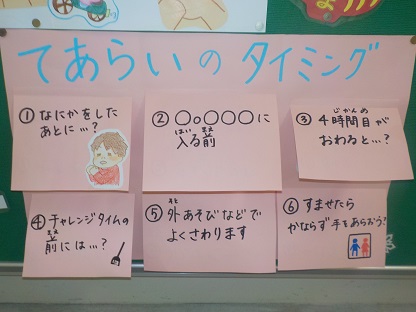 てあらいのタイミング
①なにかをした
あとに…?
②○○○○○に
入る前
はい まえ
③4時間目が
じかんめ
おわると…?
④チャレンジタイムの
前には…?
まえ
⑤外あそびなどで
そと
よくさわります
⑥すませたら
かならず手をあらおう!